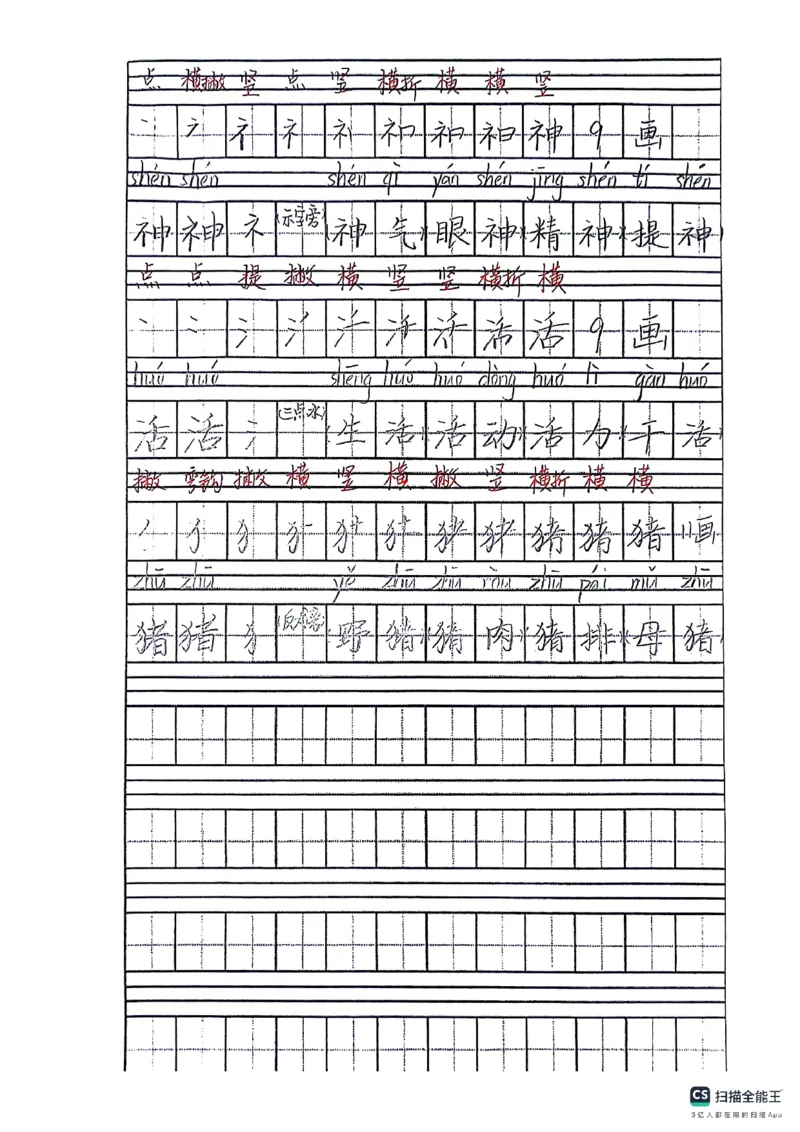 点 横撇 竖 点 竖 横折 横 横 竖
丶 礻 礻 礻 礻 礻口 礻口 礻曰 神 9 画
shén shén shén qì yǎn shén jīng shén tí shén
神 神 礻 (示字旁) 神 气 (眼 神) (精 神) (提 神)
点 点 提 撇 横 竖 竖 横折 横
丶 冫 氵 活 活 9 画
huó huó shēng huó huó dòng huó lì gàn huó
活 活 氵 (三点水) (生 活) (活 动) (活 力) (干 活)
撇 弯钩 撇 横 竖 横 撇 竖 横折 横 横
丿 犭 犭 猪 猪 猪 11画
zhū zhū yě zhū zhū ròu zhū pái mǔ zhū
猪 猪 犭 (反犬旁) (野 猪) (猪 肉) (猪 排) (母 猪)
CS 扫描全能王
3亿人都在用的扫描App